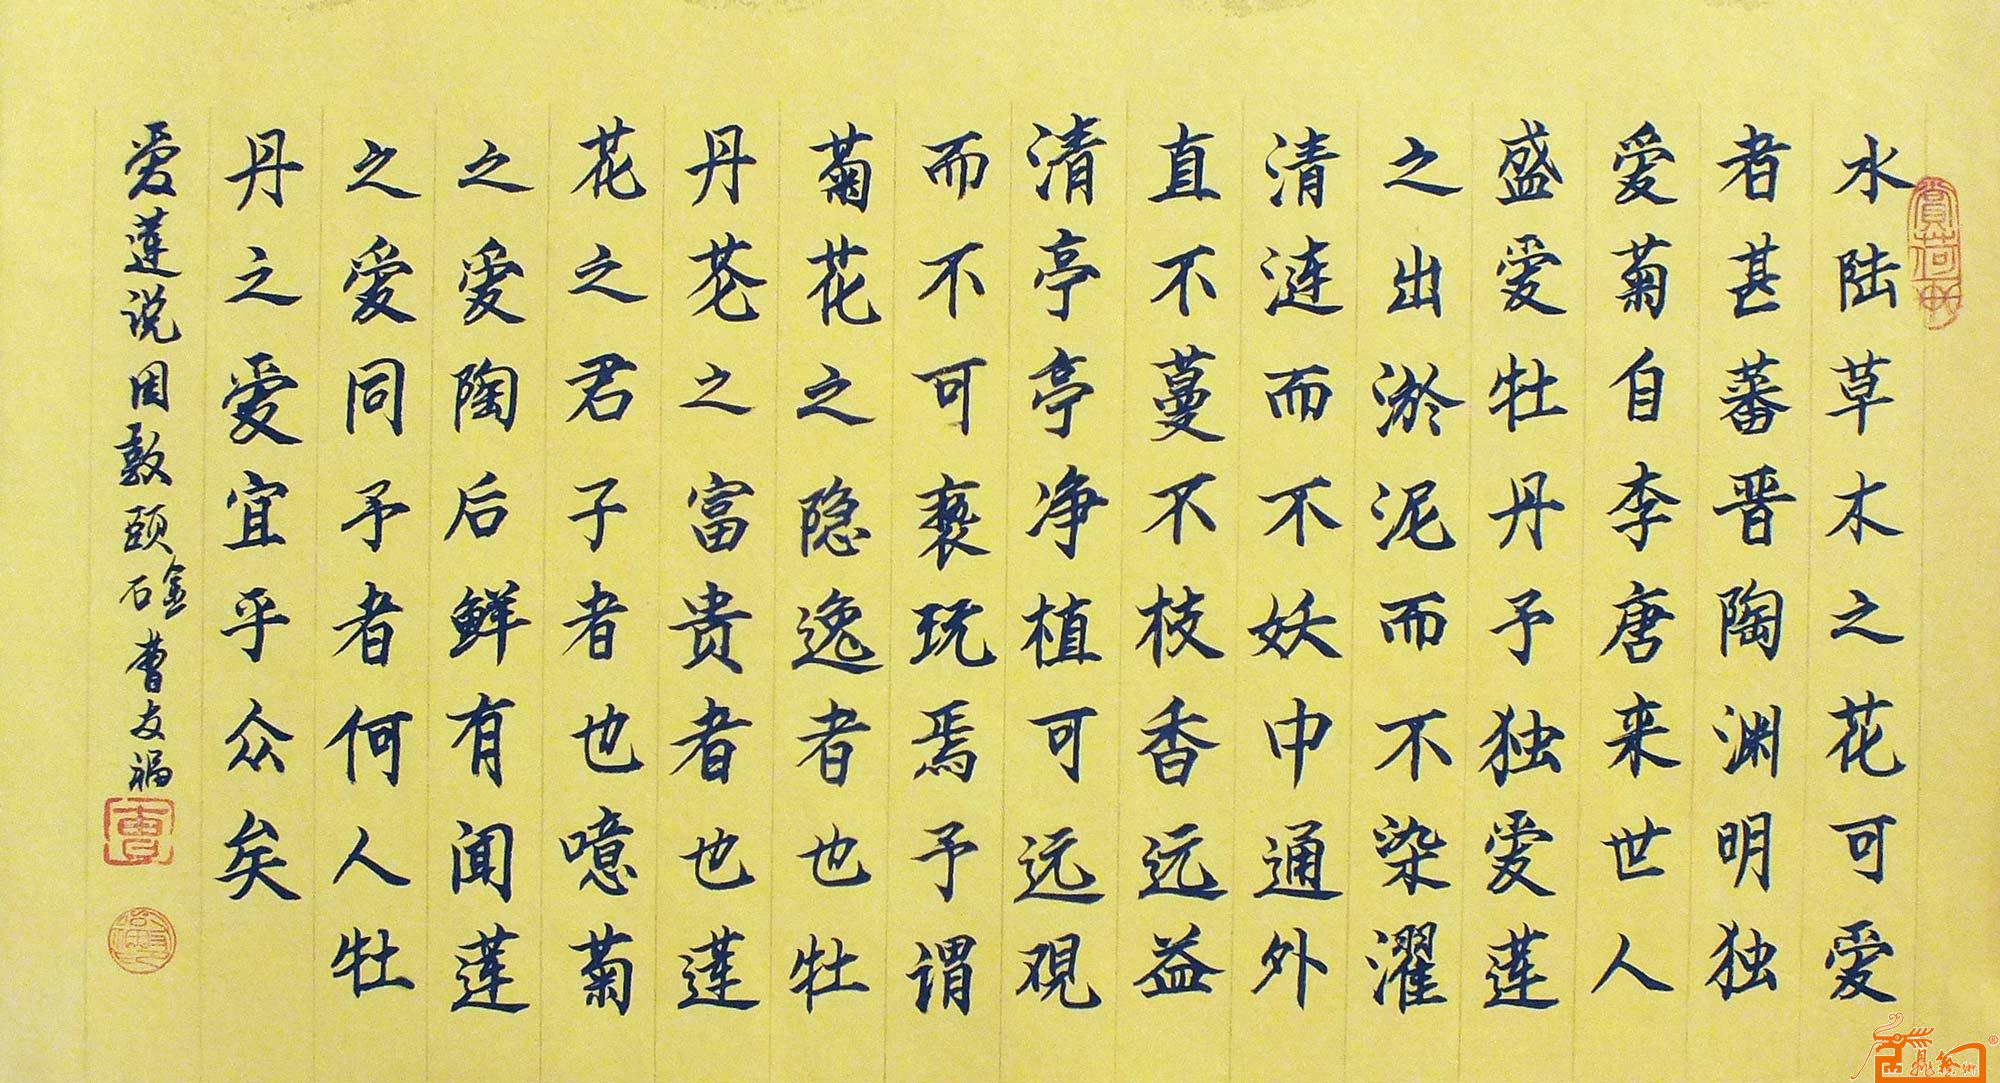 水陆草木之花可爱
者甚蕃晋陶渊明独
爱菊自李唐来世人
盛爱牡丹予独爱莲
之出淤泥而不染濯
清涟而不妖中通外
直不蔓不枝香远益
清亭亭净植可远观
而不可亵玩焉予谓
菊花之隐逸者也牡
丹花之富贵者也莲
花之君子者也噫菊
之爱陶后鲜有闻莲
之爱同予者何人牡
丹之爱宜乎众矣
爱莲说周敦颐曹友福
曹